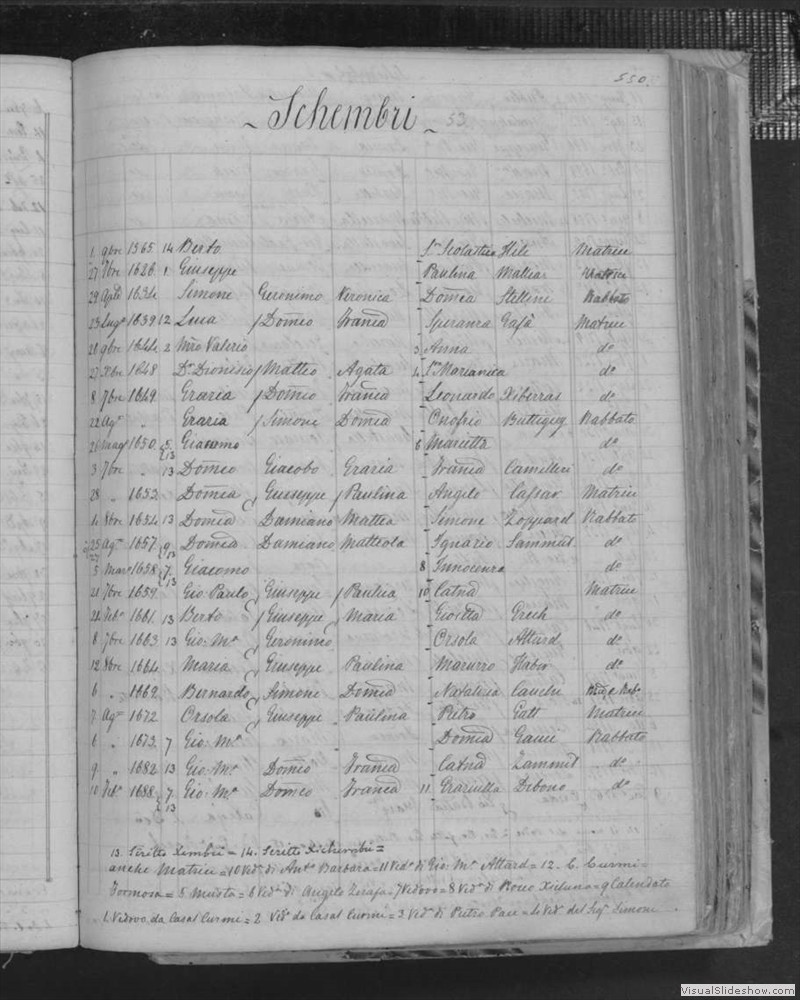 550.
~ Schembri ~ 53
1 9bre 1565 14 Berto Sra Scolastica Hili Matrice
27 7bre 1626 1 Giuseppe Paulina Matrice
29 Aple 1634 Simone Geronimo Veronica Domca Stellini Rabbato
23 Lugo 1639 12 Luca Domco Franca Speranza Gafà Matrice
20 9bre 1644 2 Mro Valerio 3 Anna do
27 Xbre 1648 Dr Dionisio Matteo Agata 4 Sra Marianica do
8 7bre 1649 Grazia Domco Franca Leonardo Xiberras do
22 Ago " Grazia Simone Domca Onofrio Buttigieg Rabbato
26 Mago 1650 5 13 Giacomo 6 Marietta do
3 7bre " 13 Domco Giacobo Grazia Franca Camilleri do
28 " 1652 Domca Giuseppe Paulina Angelo Cassar Matrice
4 8bre 1654 13 Domca Damiano Mattea Simone Zoppard Rabbato
25 Ago 1657 9 13 Domca Damiano Matteola Ignazio Sammut do
5 Mar 1658 7 13 Giacomo 8 Innocenza do
21 7bre 1659 Gio Paulo Giuseppe Paulica 10 Catna Matrice
24 Febo 1661 13 Berto Giuseppe Maria Gioetta Grech do
8 7bre 1663 13 Gio: Ma Geronimo Orsola Attard do
12 8bre 1664 Maria Giuseppe Paulina Maruzzo Haber do
6 " 1669 Bernardo Simone Domca Natalizia Cauchi
7 Ago 1672 Orsola Giuseppe Paulina Pietro Gatt Matrice
6 " 1673 7 Gio: Ma Domca Gauci Rabbato
9 " 1682 13 Gio: Ma Domco Franca Catna Zammit do
10 Febo 1688 7 13 Gio: Ma Domco Franca 11 Graziulla Debono do
13. Scritto Xembri = 14. Scritto Xichembri =
anche Matrice = 10 Veda di Anto Barbara = 11 Veda di Gio: Ma Attard = 12. C. Curmi =
Formosa = 5 Musta = 6 Veda di Angelo Zerafa = 7 Vedovo = 8 Veda di Roceo Xicluna = 9 Calendato
1. Vedovo da Casal Curmi = 2 Vedo da Casal Curmi = 3 Veda di Pietro Pace = 4 Veda del Sigr Simone
VisualSlideshow.com